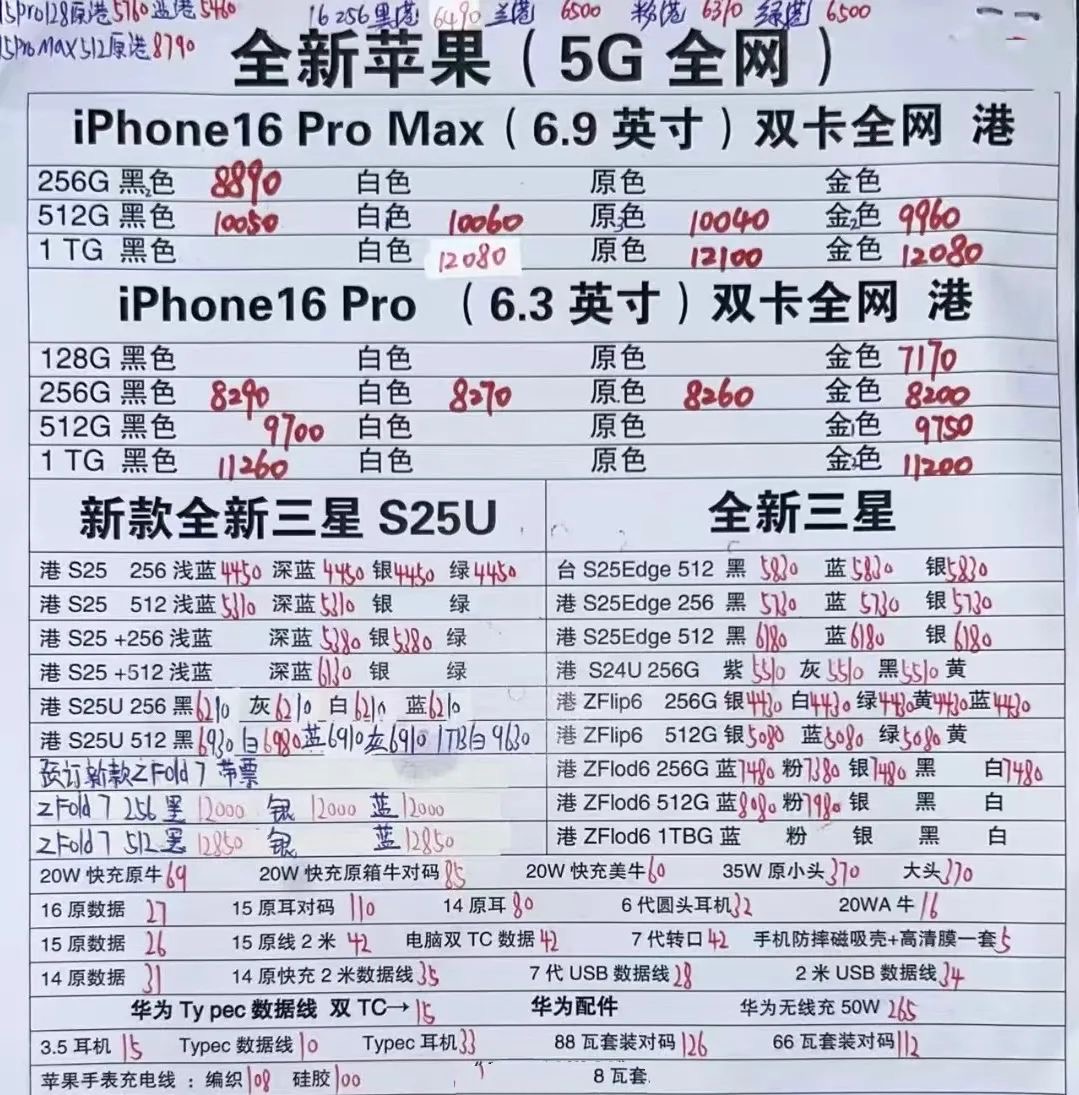 15Pro128原港5760蓝港5460 16 256黑港6490兰港 6500 粉港 6370 绿港 6500
15Pro MAX512原港8790
全新苹果（5G 全网）
iPhone16 Pro Max（6.9 英寸）双卡全网 港
256G 黑2色 8890 白色 原色 金色
512G 黑色 10050 白色 10060 原色 10040 金2色 9960
1 TG 黑色 白色 12080 原色 12100 金色 12080
iPhone16 Pro （6.3 英寸）双卡全网 港
128G 黑色 白色 原色 金色 7170
256G 黑色 8290 白色 8270 原色 8260 金色 8200
512G 黑色 9700 白色 原色 金色 9750
1 TG 黑色 11260 白色 原色 金2色 11200
新款全新三星 S25U
港 S25 256 浅蓝4450 深蓝4450 银4450 绿4450
港 S25 512 浅蓝5310 深蓝5310 银 绿
港 S25 +256 浅蓝 深蓝5380 银5380 绿
港 S25 +512 浅蓝 深蓝6130 银 绿
港 S25U 256 黑6210 灰6210 白6210 蓝6210
港 S25U 512 黑6930白6980蓝6910灰6910 1TB白9630
预订新款ZFold7 带票
ZFold7 256黑12000 银12000 蓝12000
ZFold7 512黑12850 银 蓝12850
全新三星
台 S25Edge 512 黑 5830 蓝5830 银5830
港 S25Edge 256 黑 5730 蓝 5730 银5730
港 S25Edge 512 黑6180 蓝6180 银6180
港 S24U 256G 紫5510 灰5510 黑5510 黄
港 ZFlip6 256G 银4430 白4430 绿4430黄4430蓝4430
港 ZFlip6 512G 银5080 蓝5080 绿5080 黄
港 ZFlod6 256G 蓝7480 粉7380 银7480 黑 白7480
港 ZFlod6 512G 蓝8080 粉7980 银 黑 白
港 ZFlod6 1TBG 蓝 粉 银 黑 白
20W 快充原牛69 20W 快充原箱牛对码85 20W 快充美牛60 35W 原小头370 大头370
16 原数据 27 15 原耳对码 110 14 原耳80 6 代圆头耳机32 20WA 牛16
15 原数据 26 15 原线 2 米 42 电脑双 TC 数据42 7 代转口42 手机防摔磁吸壳+高清膜一套5
14 原数据 31 14 原快充 2 米数据线35 7 代 USB 数据线28 2 米 USB 数据线34
华为 Ty pec 数据线 双 TC→15 华为配件 华为无线充 50W 265
3.5 耳机 15 Typec 数据线10 Typec 耳机33 88 瓦套装对码126 66 瓦套装对码112
苹果手表充电线 ：编织108 硅胶100 8 瓦套